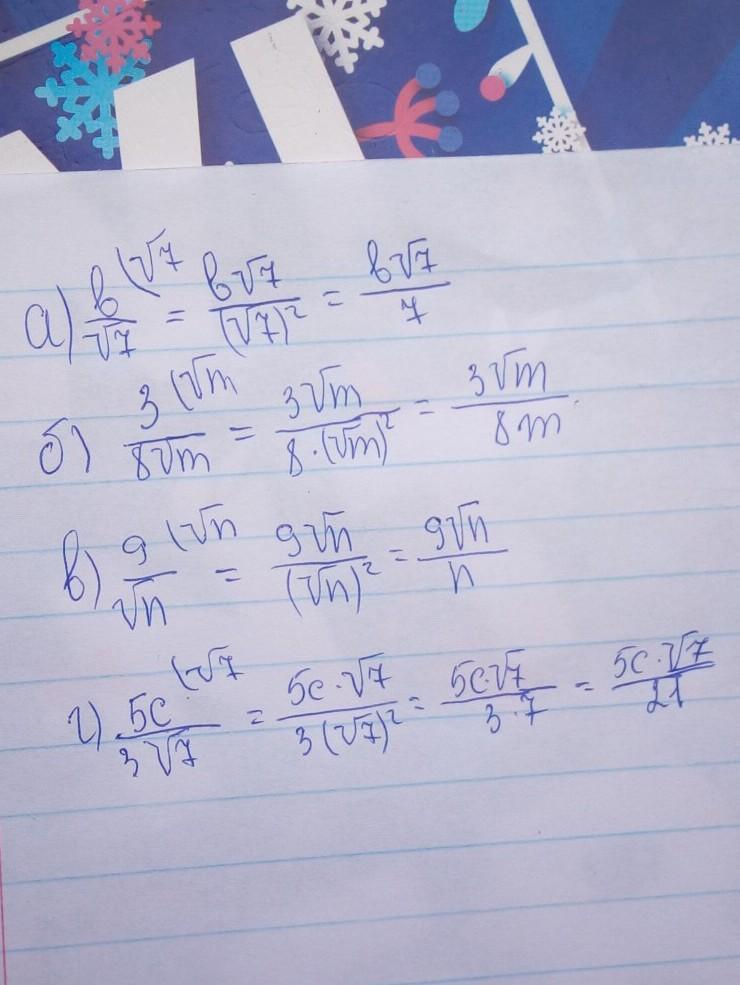 а) b/√7 (√7 = b√7/(√7)² = b√7/7
б) 3/8√m (√m = 3√m/8·(√m)² = 3√m/8m
в) 9/√n (√n = 9√n/(√n)² = 9√n/n
г) 5c/3√7 (√7 = 5c·√7/3(√7)² = 5c·√7/3·7 = 5c·√7/21